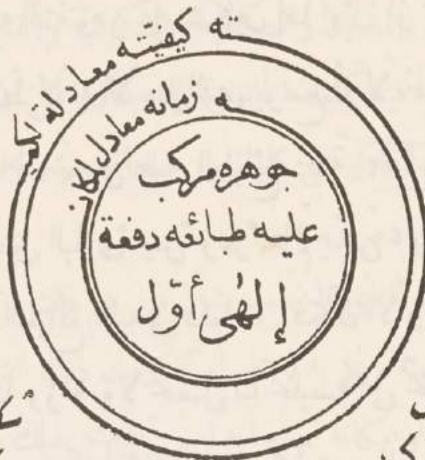 ته كيفيّته معادلة لكميـ
ـه زمانه معادل لمكان
جوهره مركب
عليه طبائعه دفعة
إلهٰى أوّل